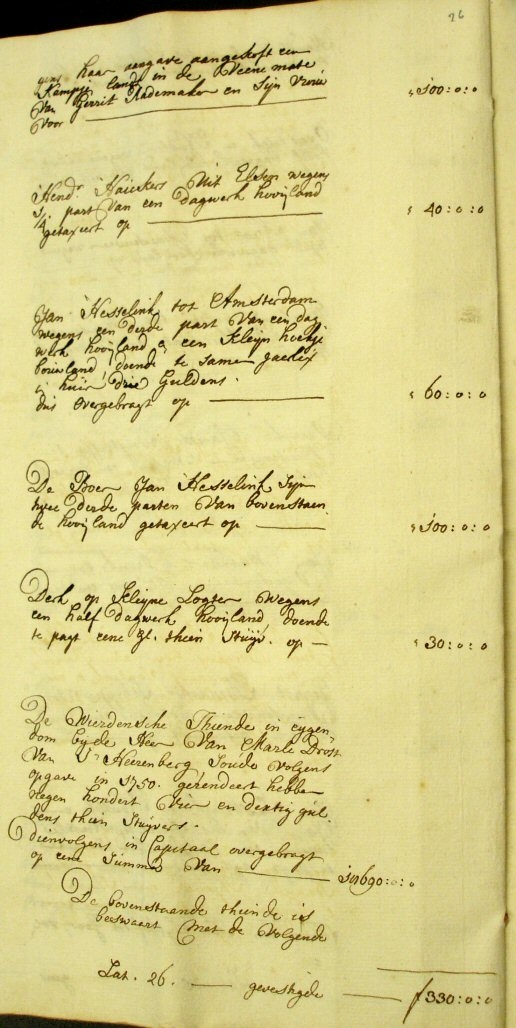 26
gens haar aangave aangekoft een
Kampje lants in de Veene mate
Van Gerrit Rademaker en Sijn Vrou
Voor ——— 100:0:0
Hendr. Haickers Uit Elsen wegens
1/4 part Van een Dagwerk hooijland
getaxeert op ——— 40:0:0
Jan Hesselink tot Amsterdam
wegens een derde part Van een dag
werk hooijland & een Kleijn hoekje
bouwland doende te samen jaerlix
in huir drie Guldens.
dus overgebragt op ——— 60:0:0
De Boer Jan Hesselink Sijn
twee derde parten Van bovenstaen
de hooijland getaxeert op ——— 100:0:0
Derk op Kleijne Logter Wegens
een half Dagwerk hooijland, doende
te pagt eene gl. thien Stuijv. op — 30:0:0
De Wierdensche Thiende in eijgen
dom bij de Heer Van Marle Drost
Van 's Heerenberg Soude Volgens
opgave in 1750. gerendeert hebben
negen hondert Vier en dertig gul
dens thien Stuijvers.
dienvolgens in Capitaal overgebragt
op eene Summa Van ——— 18690:0:0
De bovenstaande thiende is
beswaart met de Volgende
Lat. 26. — gevestigde — f 330:0:0